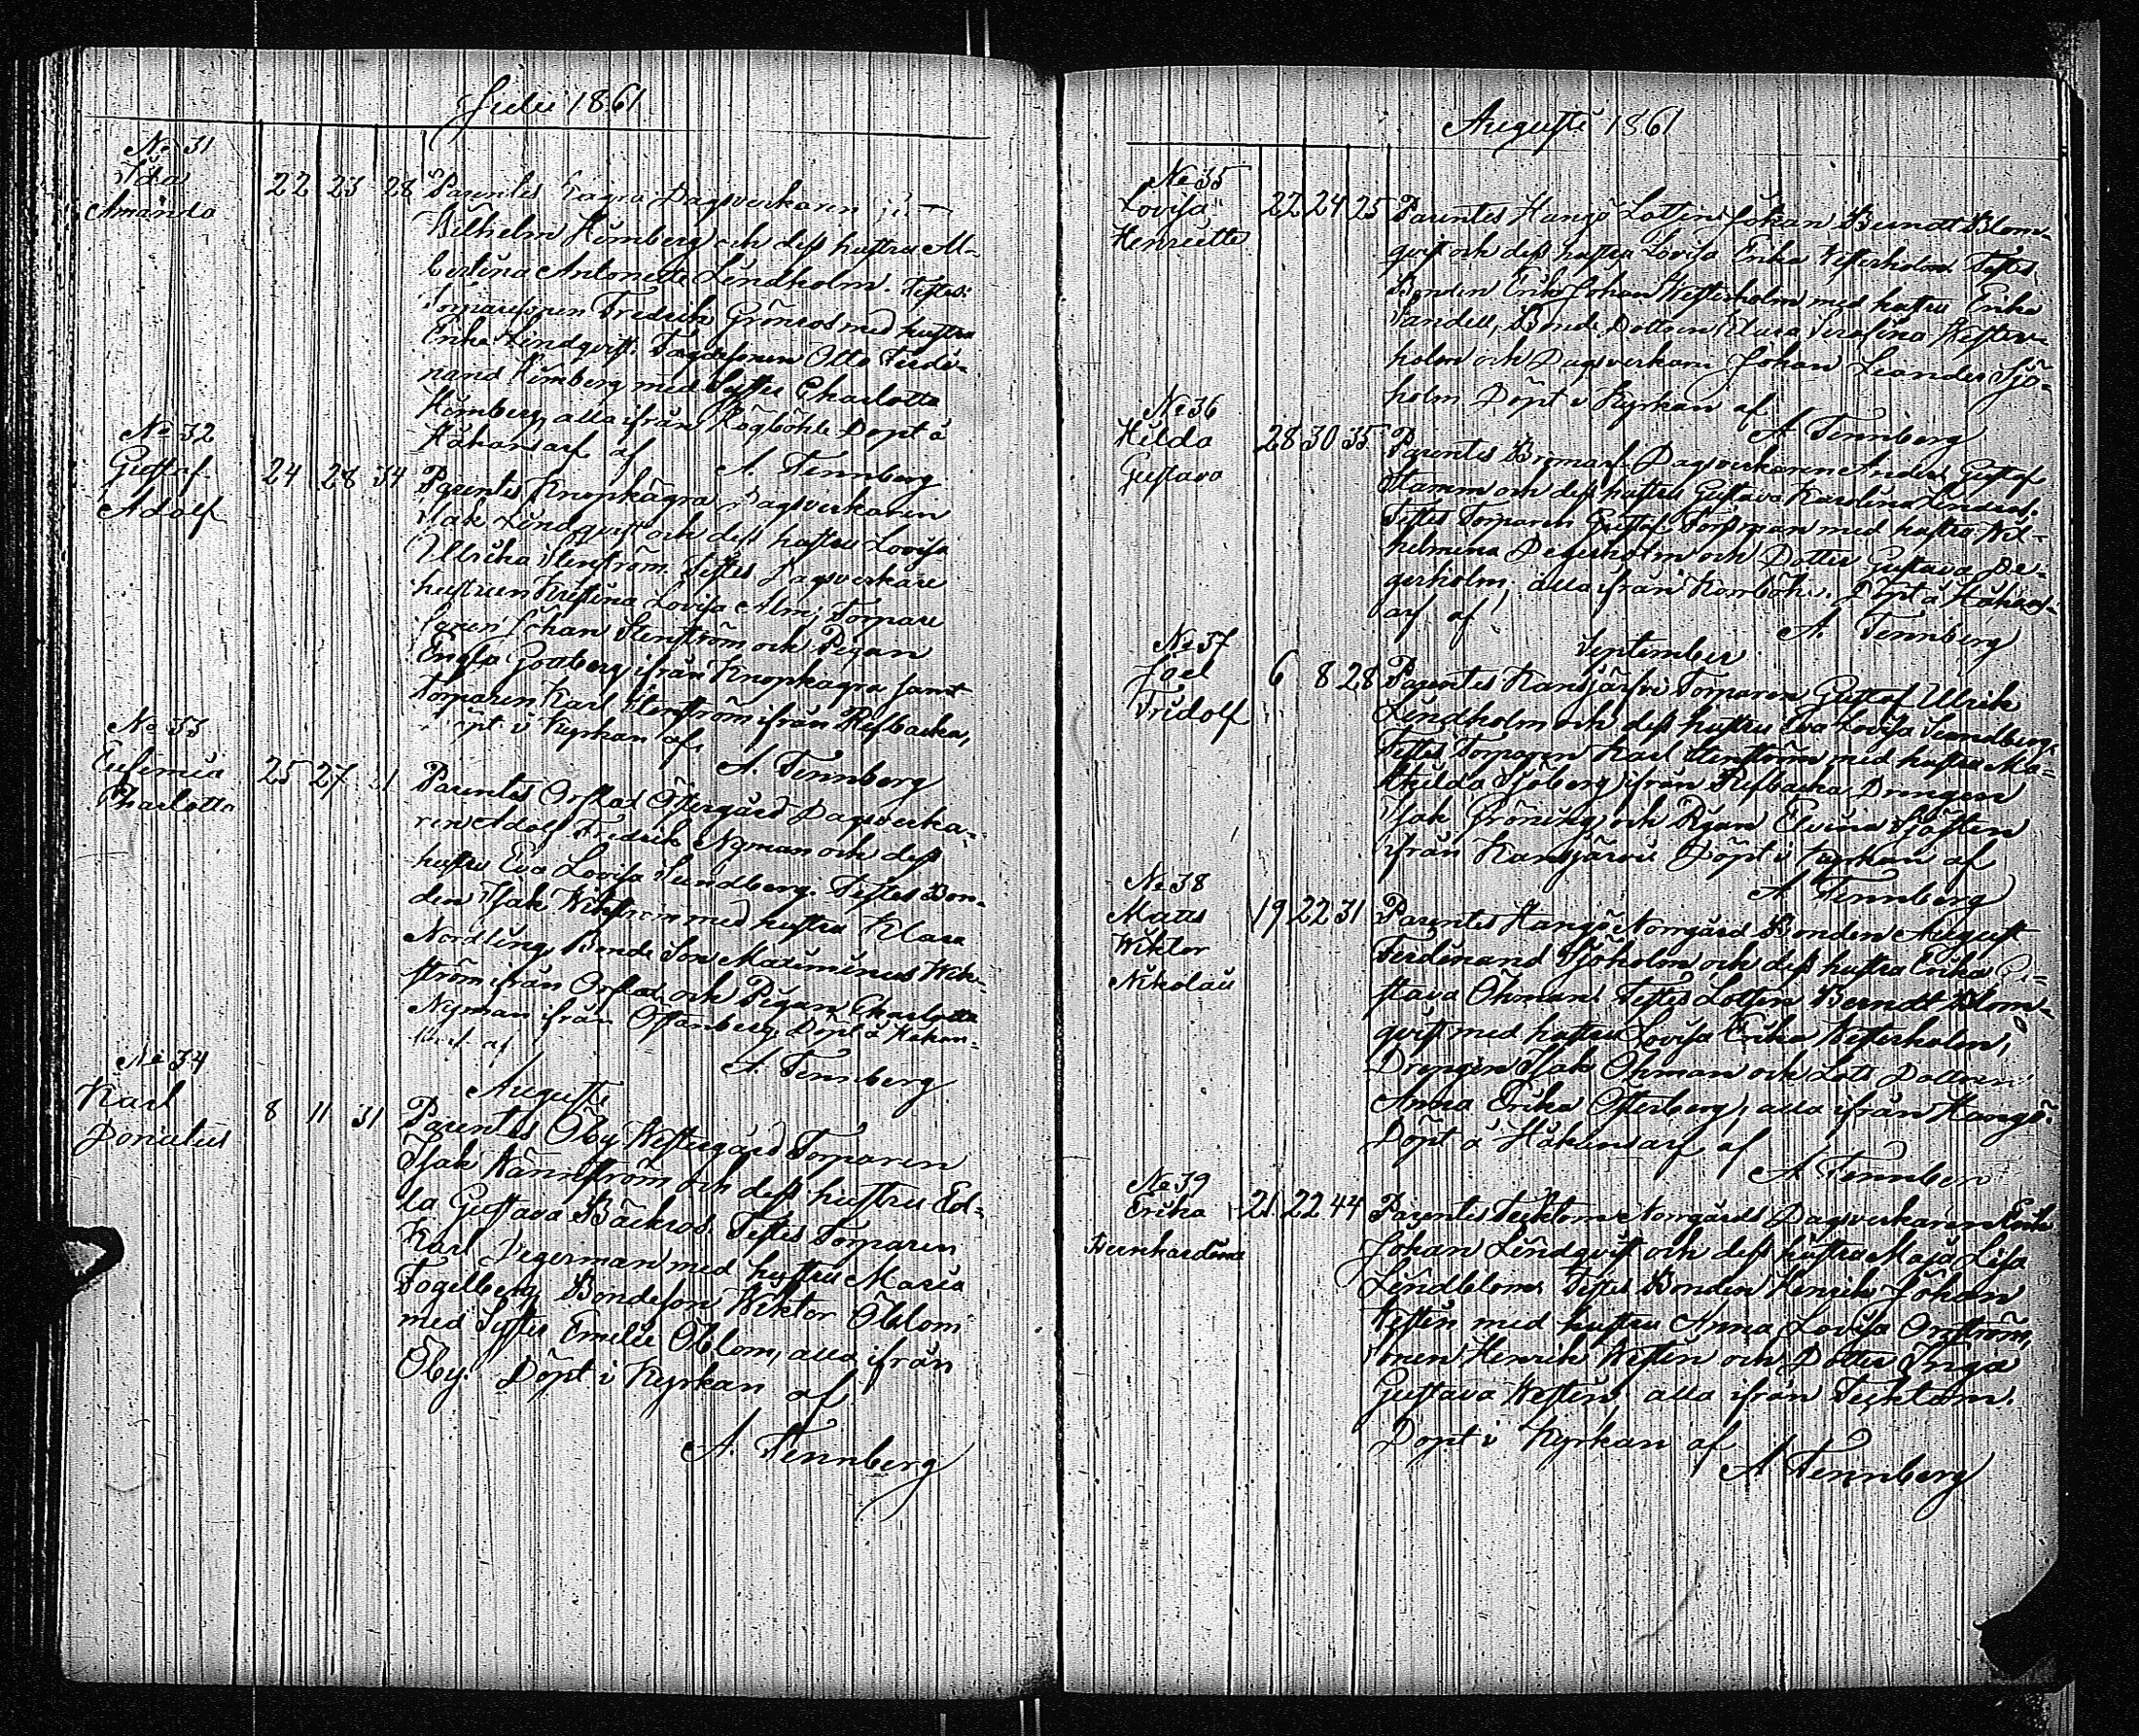 Julii 1861
No 31
Ida
Amanda
22 23 28 Parentes Dagsverkaren
Wilhelm Himberg och dess hustru Al-
bertina Antonette Lindholm. Testes:
Fredrik Grönros med hustru
Erika Lindqvist. Otto Ferdi-
nand Himberg med Syster Charlotta
Himberg, alla ifrån Rögböhle Döpt å
Håkansarf af A. Tennberg
No 32
Gustaf
Adolf
24 28 34 Parentes Knopkägra Dagsverkaren
Isak Lindqvist och dess hustru Lovisa
Ullrika Stenström. Testes Dagsverkare
hustrun Kristina Lovisa Alm, Torpare
Johan Stenström och Pigan
Engla Gottberg ifrån Knopkägra samt
Torparen Karl Stenström ifrån Refbacka,
Döpt i Kyrkan af
A. Tennberg
No 33
Eufemia
Charlotta
25 27 31 Parentes Orslax Östergård Dagsverka-
ren Adolf Fredrik Nyman och dess
hustru Eva Lovisa Sundberg. Testes Bon-
den Isak Wikström med hustru Klara
Nordling, Bonde Son Maximinus Wik-
ström ifrån Orslax och Pigan Charlotta
Nyman ifrån Öffanberg. Döpt å Håkan-
af
A. Tennberg
Augusti
No 34
Karl
Donatus
8 11 31 Parentes Öby Westergård Torparen
Isak Wännström och dess hustru Ed-
la Gustava Bäckros. Testes Torparen
Karl Degerman med hustru Maria
Fogelberg, Bondeson Wiktor Öblom
med Syster Emelie Öblom, alla ifrån
Öby. Döpt i Kyrkan af
A. Tennberg
Augusti 1861
No 35
Lovisa
Henriette
22 24 25 Parentes Hangö Lotsen Johan Berndt Blom-
qvist och dess hustru Lovisa Erika Westerholm. Testes
Bonden Erik Johan Westerholm med hustru Erika
Sandell, Bonde Dottren Klara Serafina Wester-
holm och Dagsverkarn Johan Leander Sjö-
holm Döpt i Kyrkan af
A. Tennberg
No 36
Hilda
Gustava
28 30 35 Parentes Bromarf Dagsverkaren Anders Gustaf
Stamm och dess hustru Gustava Karolina Lindros.
Testes Torparen Gustaf Forsman med hustru Wil-
helmina Degerholm och Dotter Gustava De-
gerholm, alla ifrån Kornböhle. Döpt å Håkans-
arf af
A. Tennberg
September
No 37
Joel
Fridolf
6 8 28 Parentes Kansjärfvi Torparen Gustaf Ullrik
Lindholm och dess hustru Eva Lovisa Sundberg.
Testes Torparen Karl Stenström med hustru Ma-
thilda Sjöberg ifrån Refbacka, Drengen
Isak Gröning och Pigan Elvina Sjösten
ifrån Kansjärvi Döpt i Kyrkan af
A. Tennberg
No 38
Matts
Wiktor
Nikolaus
19 22 31 Parentes Hangö Norrgård Bonden August
Ferdinand Sjöholm och dess hustru Erika Gu-
stava Öhman. Testes Lotsen Berndt Blom-
qvist med hustru Lovisa Erika Westerholm,
Drengen Isak Öhman och Lots Dottren
Anna Erika Österberg, alla ifrån Hangö.
Döpt å Håkansarf af
A. Tennberg
No 39
Erika
Bernhardina
21 22 44 Parentes Tecktom Norrgård Dagsverkaren Erik
Johan Lindqvist och dess hustru Maja Lisa
Lindblom. Testes Bonden Henrik Johan
Westin med hustru Anna Lovisa Orrström,
Sonen Henrik Westin och Dotter Inga
Gustava Westin, alla ifrån Tecktom.
Döpt i Kyrkan af
A. Tennberg